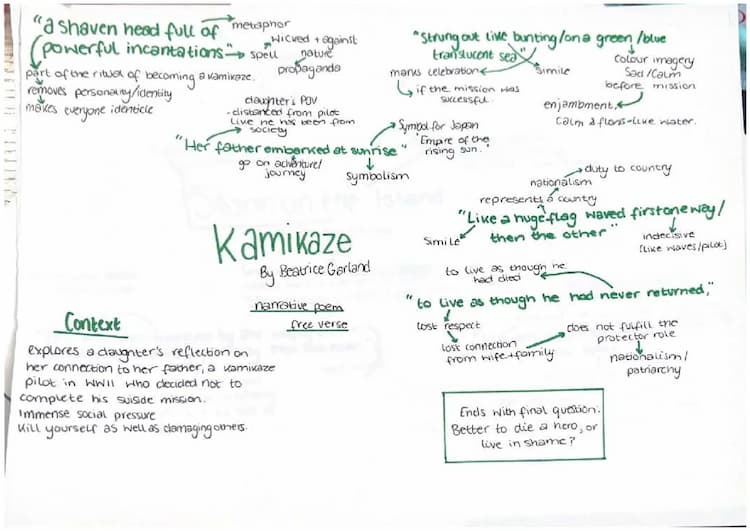 "a shaven head full of
powerful incantations"
metaphor
spell
wicked + against
nature
propaganda
part of the ritual of becoming a kamikaze.
removes personality/identity
makes everyone identicle
"Strung out like bunting/on a green/blue
translucent sea"
marks celebration
if the mission was
successful.
simile
colour imagery
Sad/calm
before mission
enjambment.
calm & flows-like water.
daughter's POV
- distanced from pilot
like he has been from
society
"Her father embarked at sunrise"
go on adventure/
journey
Symbolism
Symbol for Japan
'Empire of the
rising sun.'
duty to country
nationalism
represents a country
"Like a huge flag waved first one way/
then the other"
Simile
indecisive
(like waves/pilot)
Kamikaze
By Beatrice Garland
narrative poem
free verse
to live as though he
had died
"to live as though he had never returned,"
lost respect
lost connection
from wife+family
does not fulfill the
protector role
nationalism/
patriarchy
Context
explores a daughter's reflection on
her connection to her father, a kamikaze
pilot in WWII who decided not to
complete his suiside mission.
Immense social pressure
Kill yourself as well as damaging others.
Ends with final question:
Better to die a hero, or
live in shame?